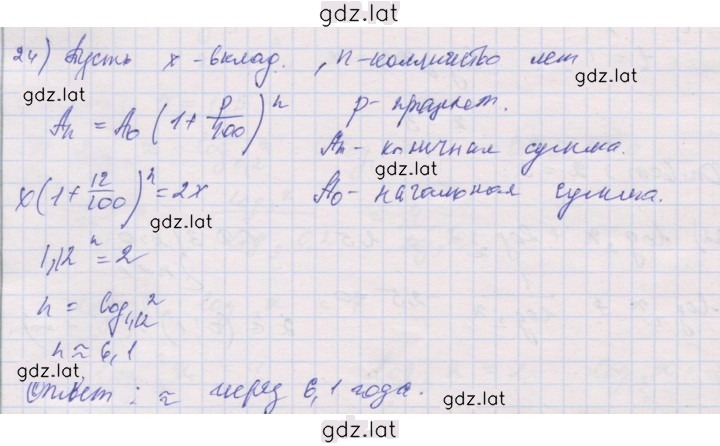 gdz.lat
24) Пусть x - вклад. , n - колличество лет
gdz.lat
Aₙ = A₀ (1 + p/100)ⁿ p - процент.
gdz.lat
Aₙ - конечная сумма.
gdz.lat
x(1 + 12/100)ⁿ = 2x A₀ - начальная сумма.
gdz.lat
1,12ⁿ = 2
n = log₁,₁₂ 2
n ≈ 6,1
gdz.lat
Ответ : ≈ через 6,1 года.
gdz.lat
gdz.lat